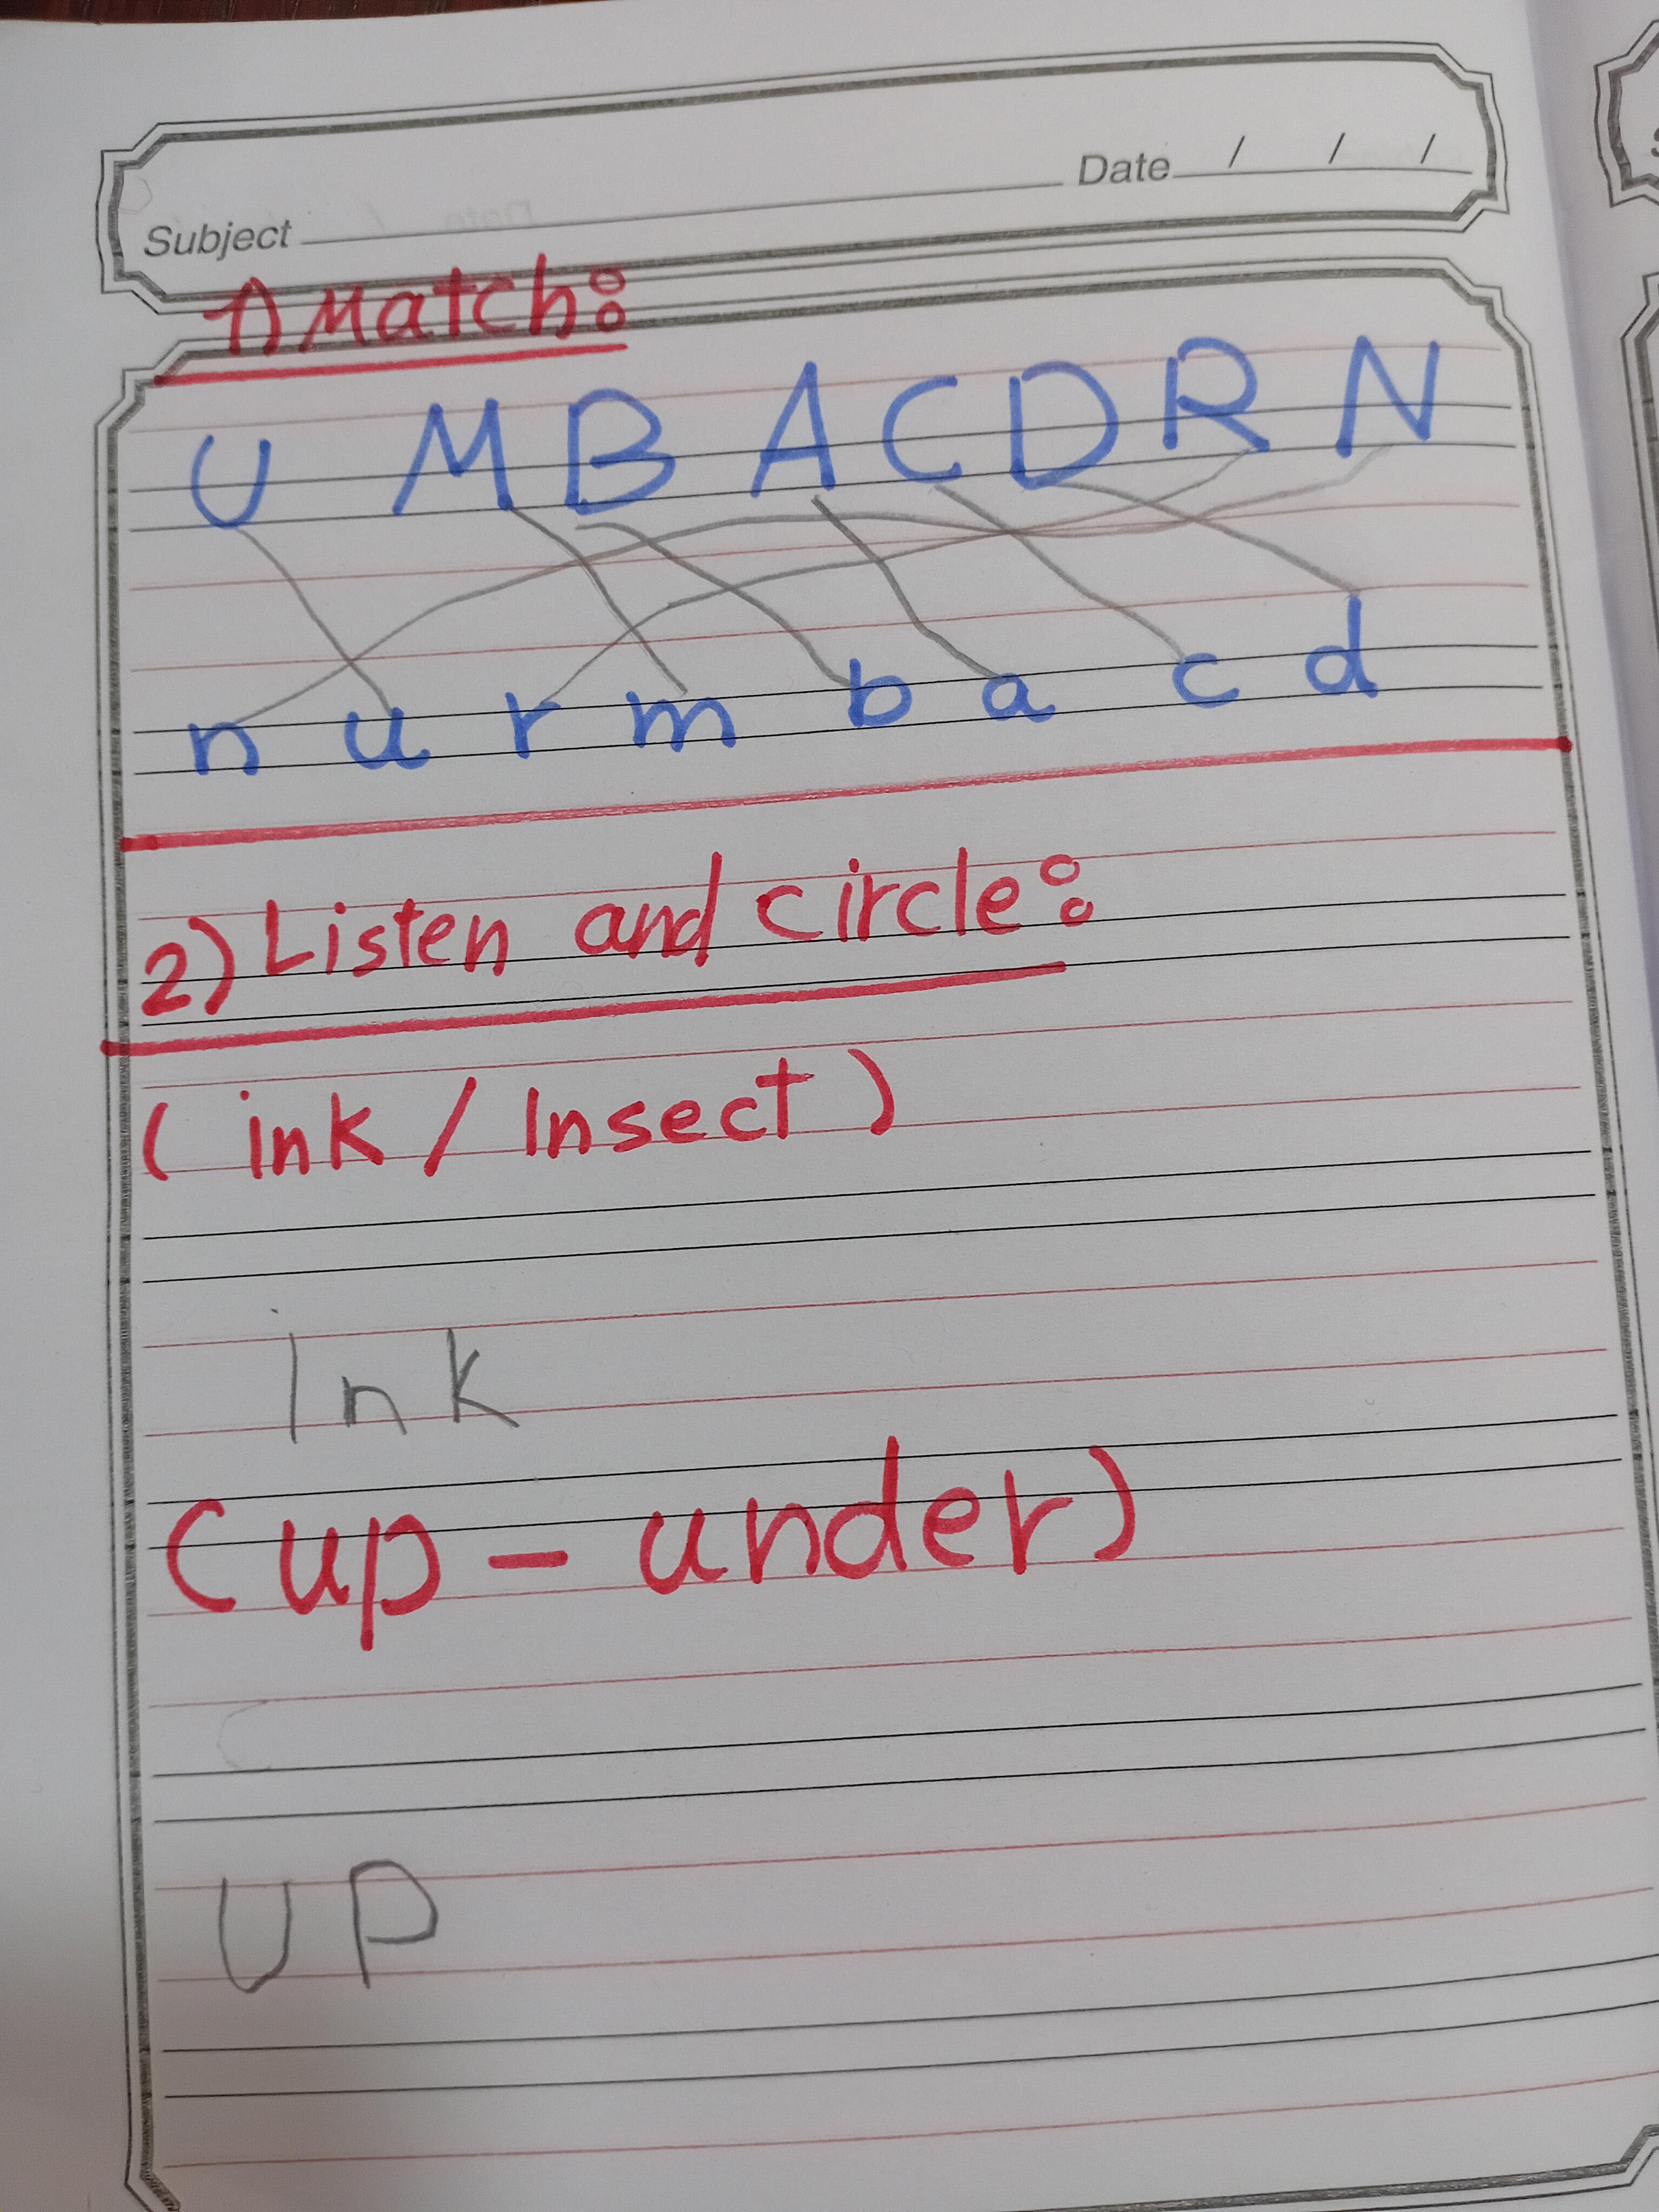 Date / / /
Subject
1) Match:
U M B A C D R N
n u r m b a c d
2) Listen and circle:
( ink / Insect )
Ink
( up - under )
UP